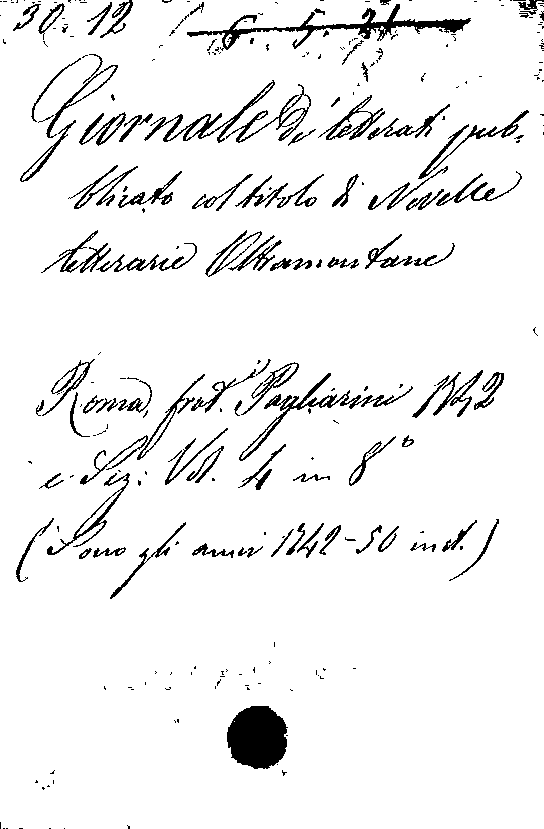 30. 12 6. 5. 21
Giornale de' letterati pub-
blicato col titolo di Novelle
letterarie Oltramontane
Roma, frat.i Pagliarini 1742
e Seg: Vol. 4 in 8°
(Sono gli anni 1742-50 incl.)